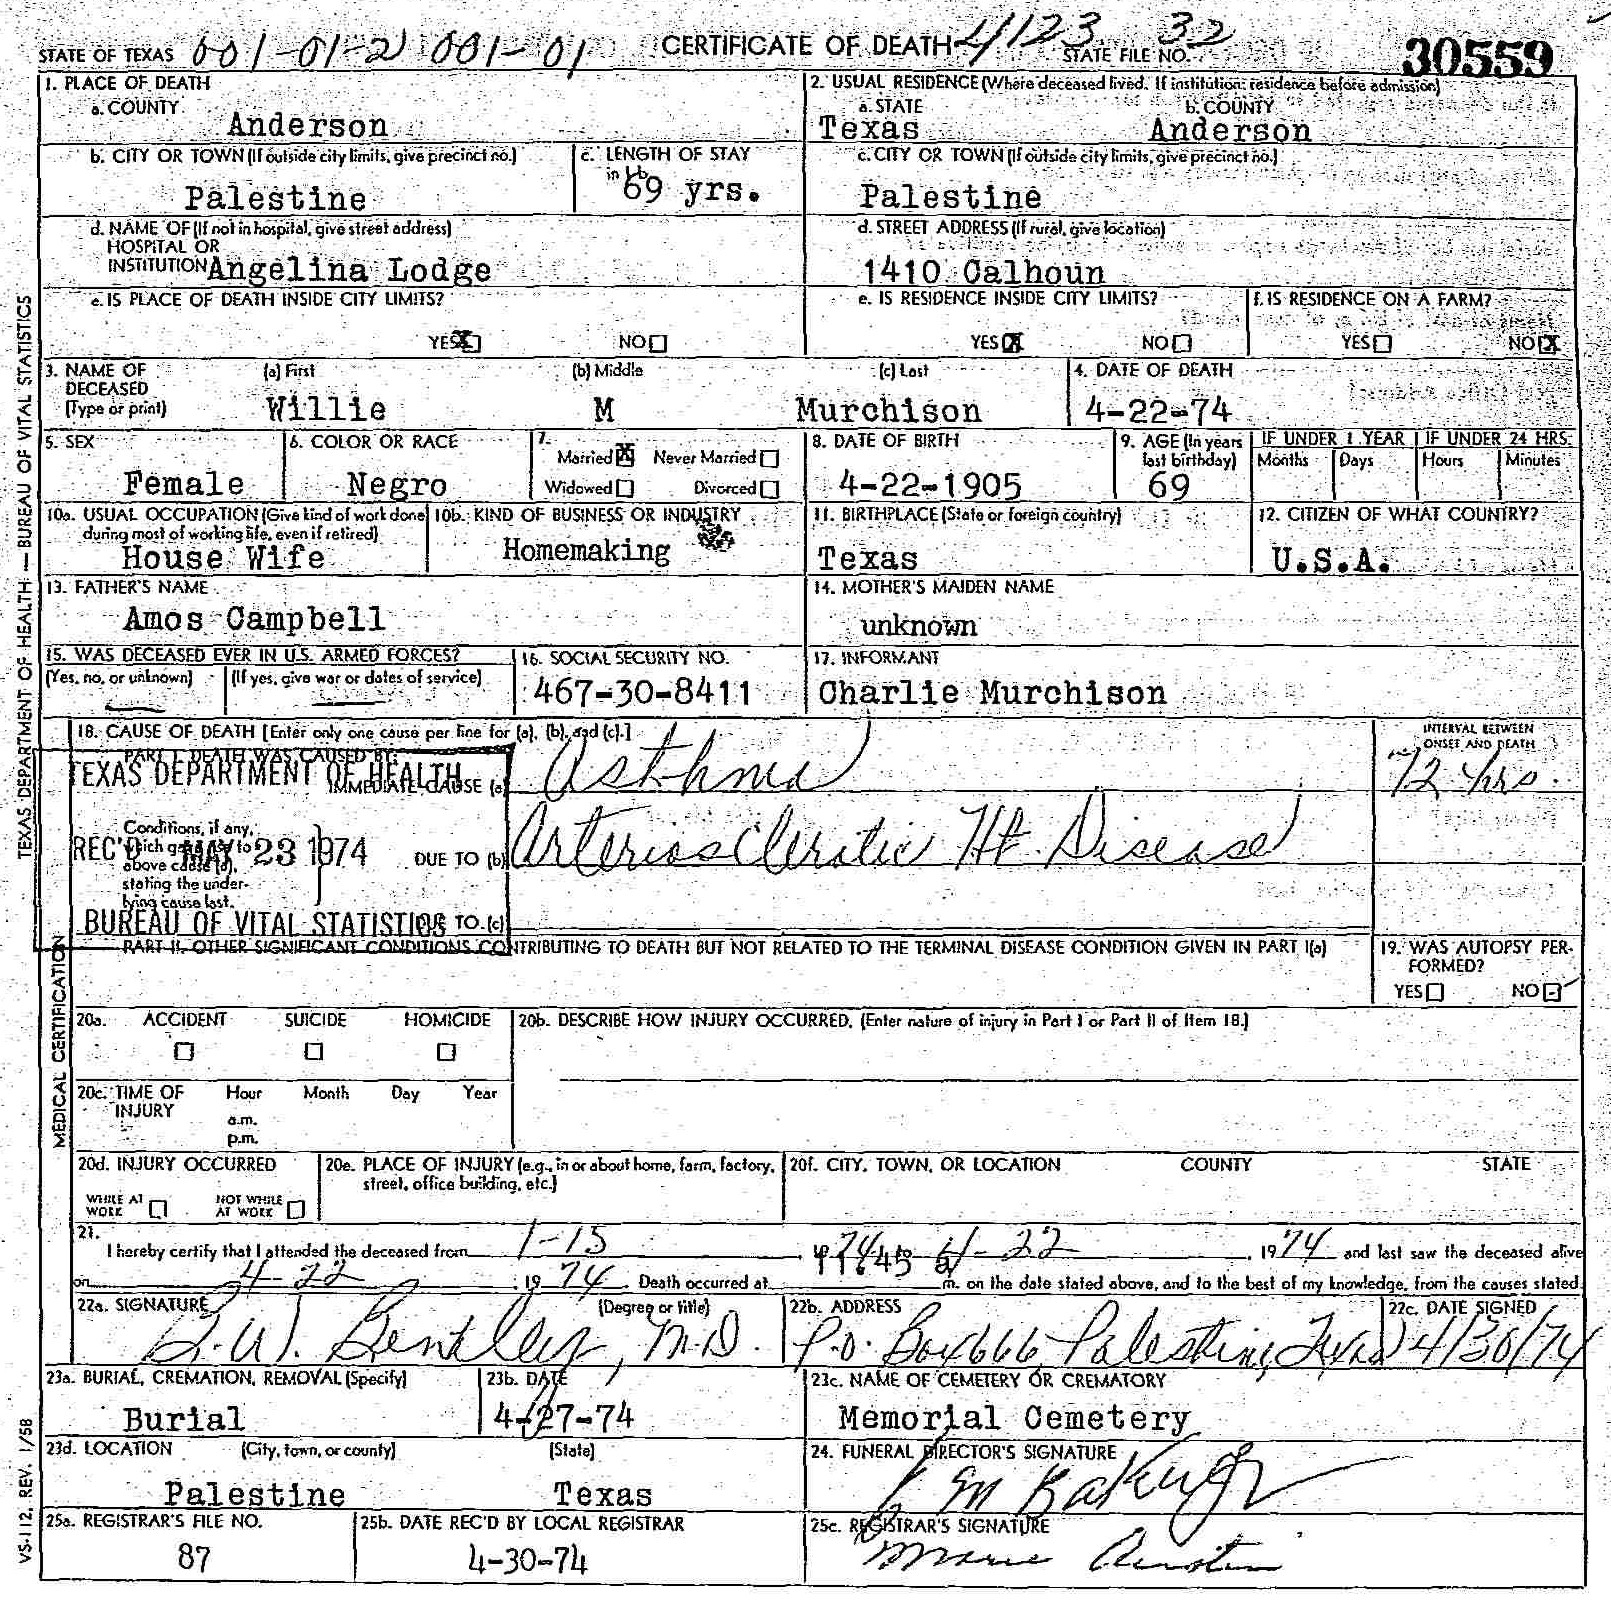 STATE OF TEXAS 001-01-2 001-01 CERTIFICATE OF DEATH 4123 STATE FILE NO. 32 30559
1. PLACE OF DEATH
a. COUNTY
Anderson
2. USUAL RESIDENCE (Where deceased lived. If institution: residence before admission)
a. STATE b. COUNTY
Texas Anderson
b. CITY OR TOWN (If outside city limits, give precinct no.)
Palestine
c. LENGTH OF STAY
in 1b
69 yrs.
c. CITY OR TOWN (If outside city limits, give precinct no.)
Palestine
d. NAME OF (If not in hospital, give street address)
HOSPITAL OR
INSTITUTION Angelina Lodge
d. STREET ADDRESS (If rural, give location)
1410 Calhoun
e. IS PLACE OF DEATH INSIDE CITY LIMITS?
YES NO
e. IS RESIDENCE INSIDE CITY LIMITS?
YES X NO
f. IS RESIDENCE ON A FARM?
YES NO X
3. NAME OF
DECEASED
(Type or print)
(a) First (b) Middle (c) Last
Willie M Murchison
4. DATE OF DEATH
4-22-74
5. SEX
Female
6. COLOR OR RACE
Negro
7.
Married X Never Married
Widowed Divorced
8. DATE OF BIRTH
4-22-1905
9. AGE (In years
last birthday)
69
IF UNDER 1 YEAR IF UNDER 24 HRS.
Months Days Hours Minutes
10a. USUAL OCCUPATION (Give kind of work done
during most of working life, even if retired)
House Wife
10b. KIND OF BUSINESS OR INDUSTRY
Homemaking
11. BIRTHPLACE (State or foreign country)
Texas
12. CITIZEN OF WHAT COUNTRY?
U.S.A.
13. FATHER'S NAME
Amos Campbell
14. MOTHER'S MAIDEN NAME
unknown
15. WAS DECEASED EVER IN U.S. ARMED FORCES?
(Yes, no, or unknown) (If yes, give war or dates of service)
16. SOCIAL SECURITY NO.
467-30-8411
17. INFORMANT
Charlie Murchison
18. CAUSE OF DEATH [Enter only one cause per line for (a), (b), and (c).]
PART I. DEATH WAS CAUSED BY:
IMMEDIATE CAUSE (a) Asthma
INTERVAL BETWEEN
ONSET AND DEATH
72 hrs.
TEXAS DEPARTMENT OF HEALTH
REC'D MAY 23 1974
BUREAU OF VITAL STATISTICS
Conditions, if any,
which gave rise to
above cause (a),
stating the under-
lying cause last.
DUE TO (b) Arteriosclerotic Ht. Disease
DUE TO (c)
PART II. OTHER SIGNIFICANT CONDITIONS CONTRIBUTING TO DEATH BUT NOT RELATED TO THE TERMINAL DISEASE CONDITION GIVEN IN PART I(a)
19. WAS AUTOPSY PER-
FORMED?
YES NO
20a. ACCIDENT SUICIDE HOMICIDE
20b. DESCRIBE HOW INJURY OCCURRED. (Enter nature of injury in Part I or Part II of item 18.)
20c. TIME OF
INJURY
Hour Month Day Year
a.m.
p.m.
20d. INJURY OCCURRED
WHILE AT
WORK
NOT WHILE
AT WORK
20e. PLACE OF INJURY (e.g., in or about home, farm, factory,
street, office building, etc.)
20f. CITY, TOWN, OR LOCATION COUNTY STATE
21.
I hereby certify that I attended the deceased from 1-15, 1974 to 4-22, 1974 and last saw the deceased alive
on 4-22, 1974. Death occurred at 11:45 a m. on the date stated above, and to the best of my knowledge, from the causes stated.
22a. SIGNATURE (Degree or title)
M.D.
22b. ADDRESS
P.O. Box 666, Palestine, Texas
22c. DATE SIGNED
4/30/74
23a. BURIAL, CREMATION, REMOVAL (Specify)
Burial
23b. DATE
4-27-74
23c. NAME OF CEMETERY OR CREMATORY
Memorial Cemetery
23d. LOCATION (City, town, or county) (State)
Palestine Texas
24. FUNERAL DIRECTOR'S SIGNATURE
25a. REGISTRAR'S FILE NO.
87
25b. DATE REC'D BY LOCAL REGISTRAR
4-30-74
25c. REGISTRAR'S SIGNATURE
Marie Austin
TEXAS DEPARTMENT OF HEALTH — BUREAU OF VITAL STATISTICS
MEDICAL CERTIFICATION
VS-112, REV. 1/58